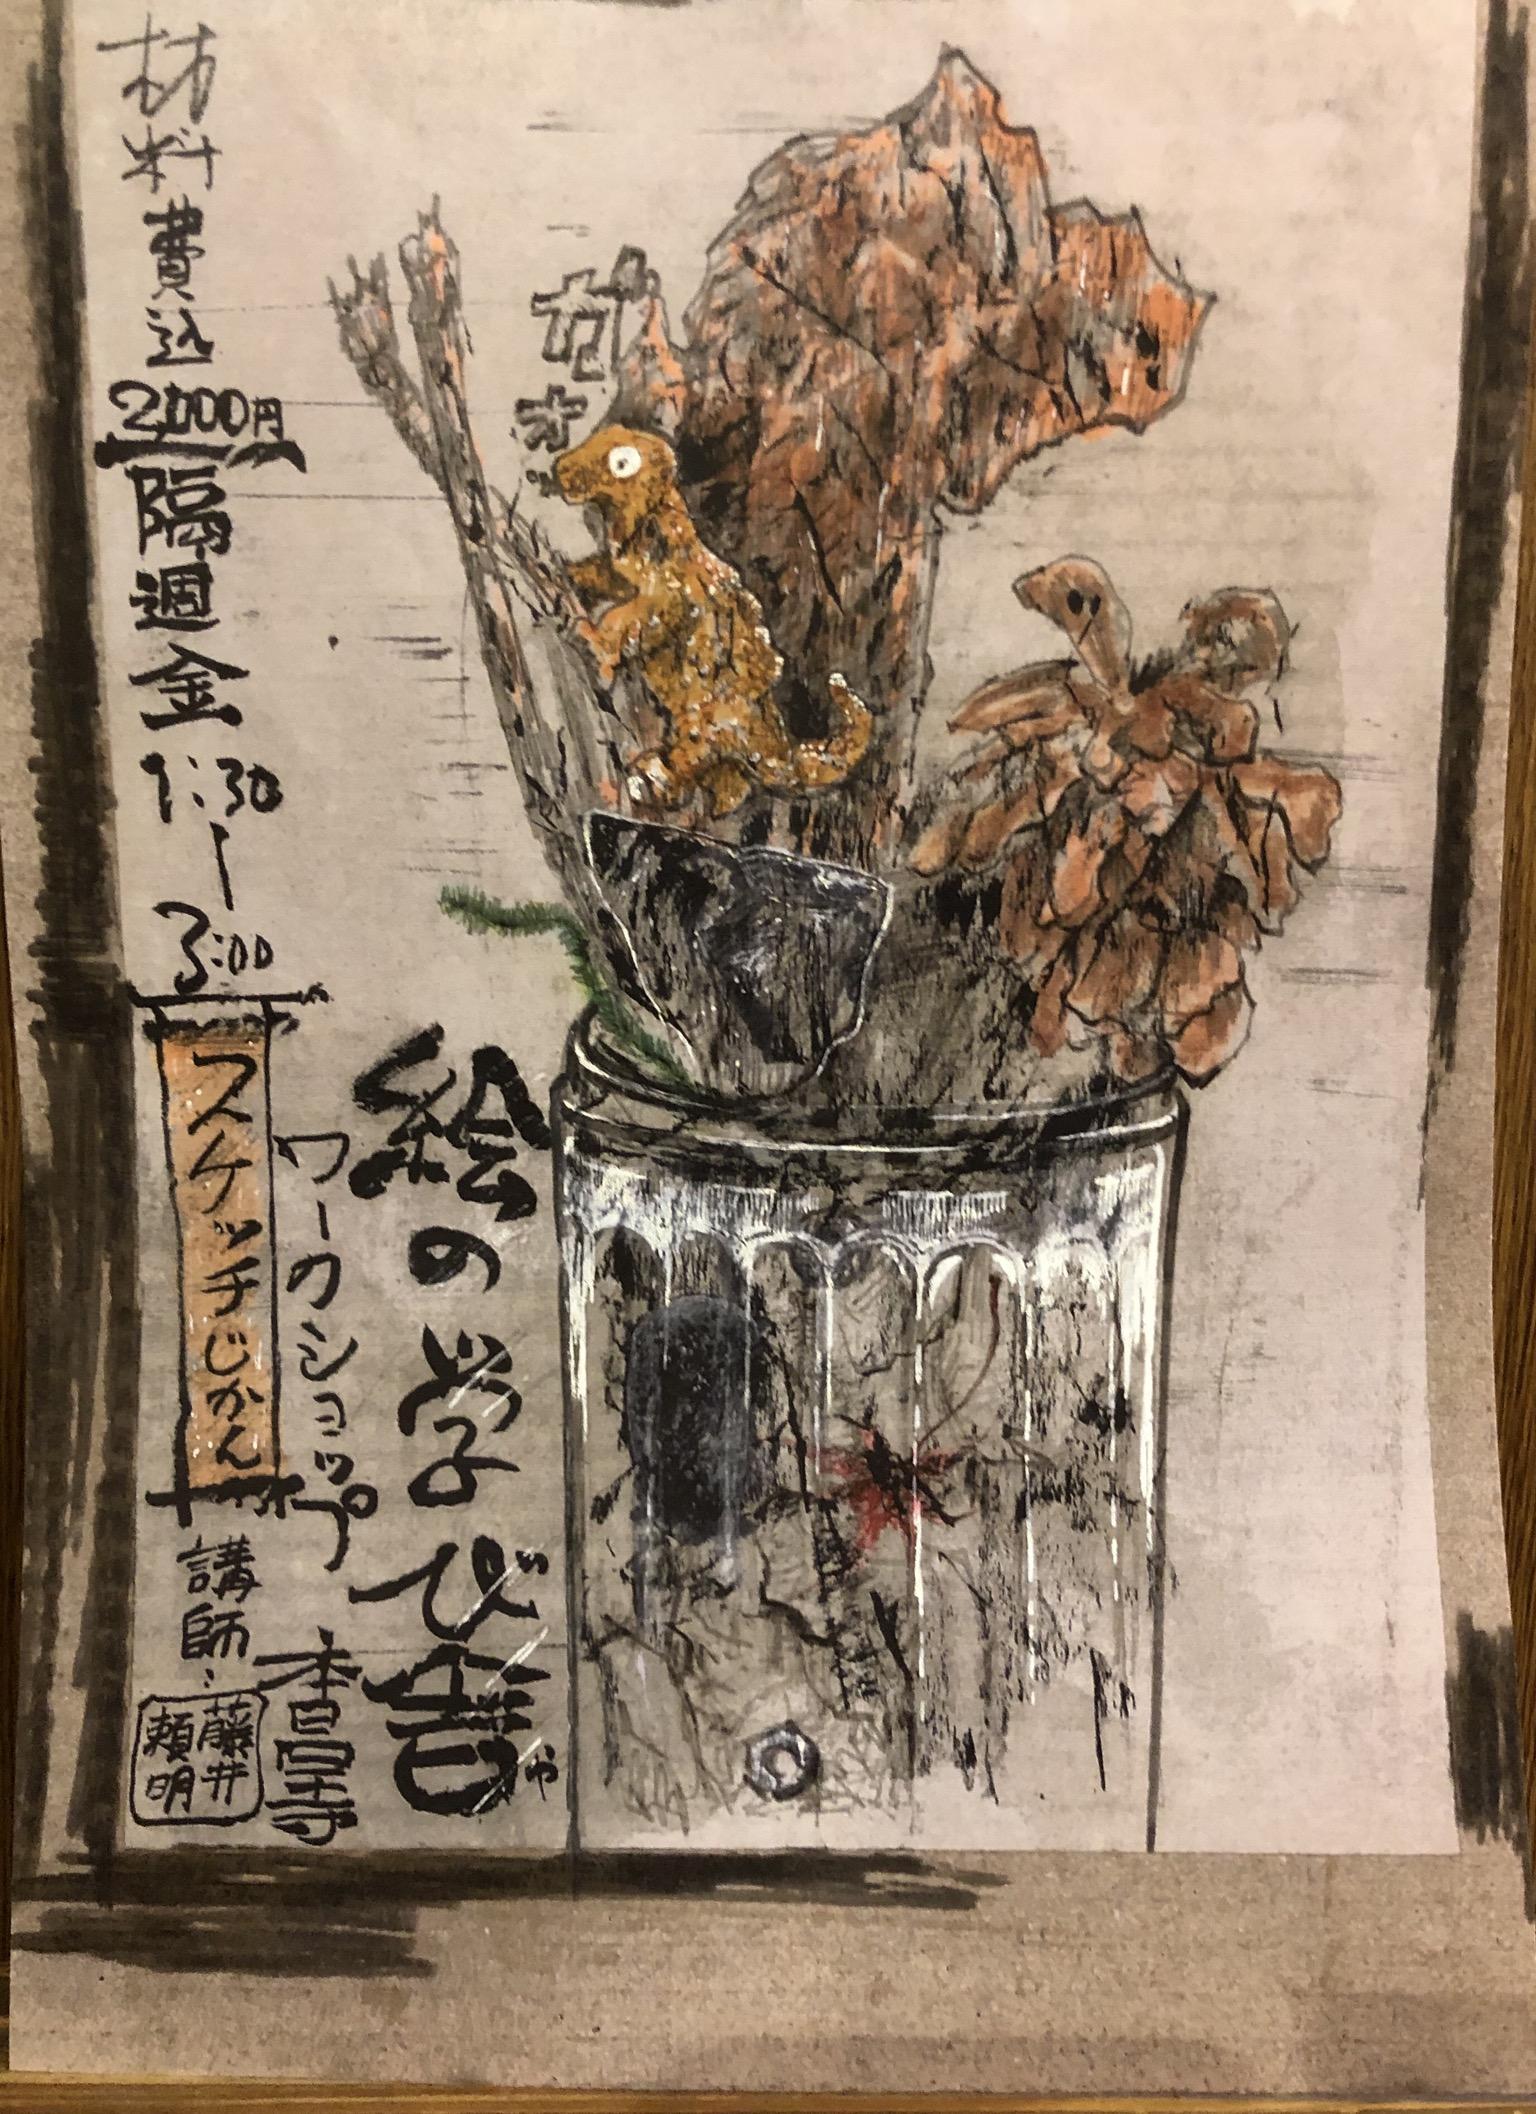 ガオ…
絵の学び舎
や
ワークショップ 本昌寺
材料費込
2,000円
隔週金
1:30
|
3:00
スケッチじかん
講師:
藤井
頼明